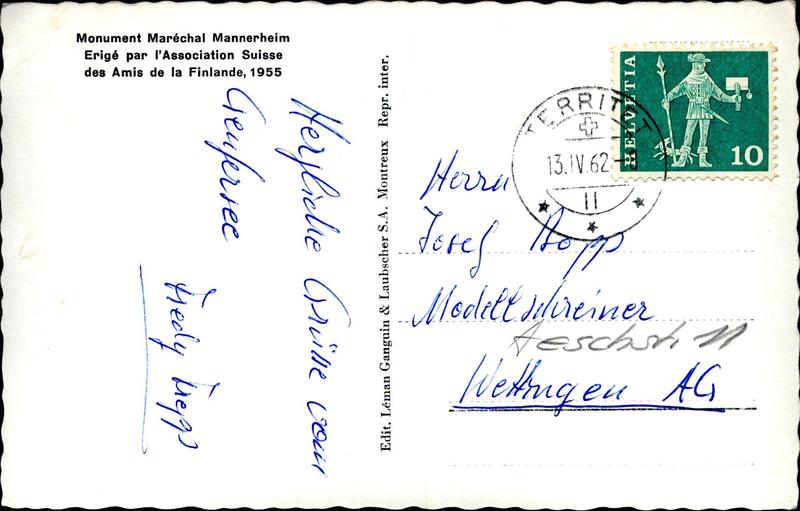 Monument Maréchal Mannerheim
Erigé par l'Association Suisse
des Amis de la Finlande, 1955
Herzliche Grüsse vom
Genfersee
Fredy
Edit. Léman Ganguin & Laubscher S.A. Montreux Repr. inter.
TERRITET
13.IV.62-8
11
HELVETIA
10
Herrn
Josef Bopp
Modellschreiner
Aeschstr. 11
Wettingen AG